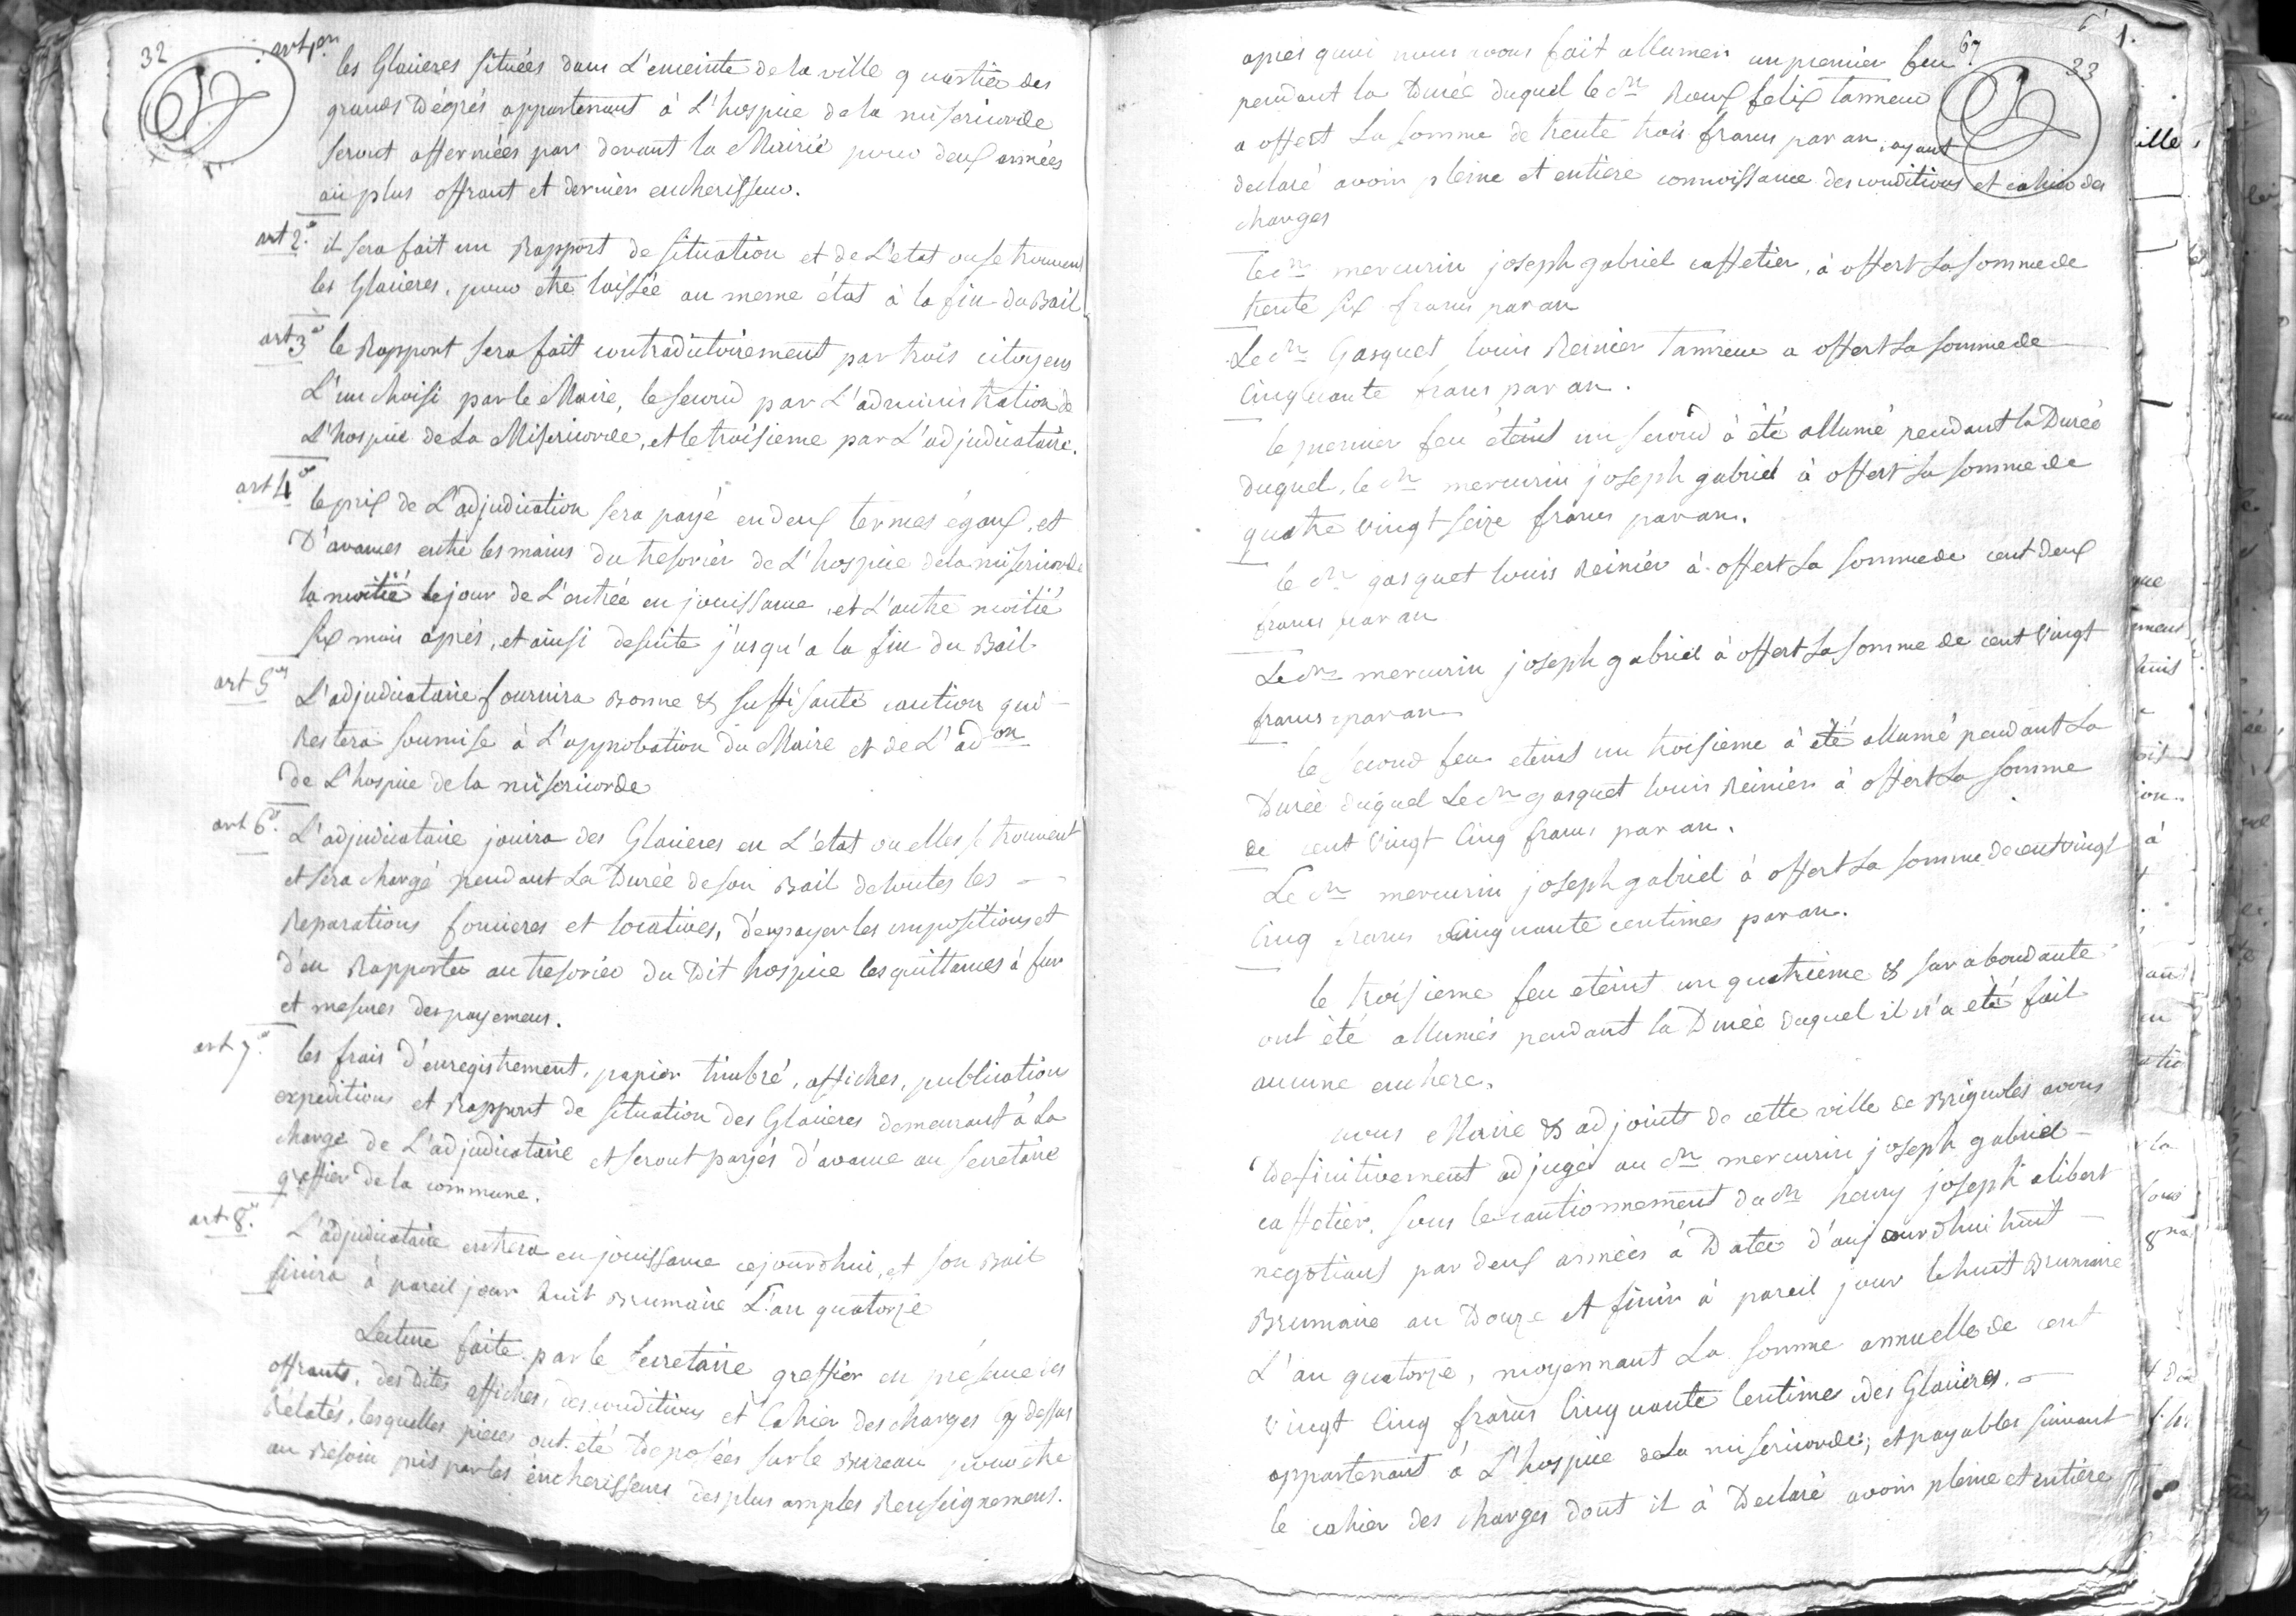 32
art 1er
les Glacieres situées dans L'enceinte de la ville quartier des
grands Dégrés appartenant à L'hospice de la misericorde
seront affermées par devant la Mairie pour deux années
au plus offrant et dernier encherisseur.
art 2e il sera fait un Rapport de situation et de L'etat ou se trouvent
les Glacieres, pour etre laissée au meme état à la fin du Bail
art 3e le Rapport sera fait contradictoirement par trois citoyens
L'un choisi par le Maire, le second par L'administration de
L'hospice de La Misericorde, et le troisieme par L'adjudicataire.
art 4e le prix de L'adjudication sera payé en deux termes égaux, et
D'avances entre les mains du tresorier de L'hospice de la misericorde
la moitié le jour de L'entrée en jouissance, et L'autre moitié
six mois après, et ainsi desuite jusqu'a la fin du Bail
art 5e L'adjudicataire fournira Bonne & suffisante caution qui
Restera soumise à L'approbation du Maire et de L'adon
de L'hospice de la misericorde
art 6e L'adjudicataire jouira des Glacieres en L'état ou elles se trouvent
et sera chargé pendant La Durée de son Bail de toutes les
Reparations foncieres et locatives, d'en payer les impositions et
d'en Rapporter au tresorier du Dit hospice les quittances à fur
et mesures des payemens.
art 7e les frais d'enregistrement, papier timbré, affiches, publication
expeditions et Rapport de situation des Glacieres demeurant à La
charge de L'adjudicataire et seront payés d'avance au secretaire
greffier de la commune.
art 8e L'adjudicataire entrera en jouissance cejourdhui, et son Bail
finira à pareil jour huit Brumaire L'an quatorze
Lecture faite par le secretaire greffier en présence des
offrants, des dites affiches, des conditions et Cahier des charges Cy dessus
Rélatés, lesquelles pieces ont été Deposées sur le Bureau pour etre
au Besoin pris par les encherisseurs des plus amples Renseignemens.
67
33
après quoi nous avons fait allumer un premier feu
pendant la Durée duquel le cn Roux felix Tanneur
a offert La somme de trente trois francs par an, ayant
declaré avoir pleine et entiere connoissance des conditions et cahier des
charges
Le cn mercurin joseph gabriel caffetier, à offert La somme de
trente six francs par an
Le cn Gasquet louis Reinier Tanneur a offert La somme de
Cinquante francs par an.
le premier feu éteint un second à été allumé pendant la Durée
duquel, le cn mercurin joseph gabriel à offert La somme de
quatre vingt seize francs par an.
le cn gasquet louis Reinier à offert La somme de cent deux
francs par an
Le cn mercurin joseph gabriel à offert La somme de cent vingt
francs par an
le second feu eteint un troisieme à été allumé pendant La
Durée duquel Le cn gasquet louis Reinier à offert La somme
de cent vingt Cinq francs par an.
Le cn mercurin joseph gabriel à offert La somme de cent vingt
Cinq francs Cinquante centimes par an.
le troisieme feu eteint un quatrième & surabondante
ont été allumés pendant la Durée duquel il n'a été fait
aucune enchere.
nous Maire & adjoints de cette ville de Brignoles avons
Definitivement adjugé au cn mercurin joseph gabriel
caffetier, sous le cautionnement du cn henry joseph alibert
negotiant par deux années à Dater d'aujourdhui huit
Brumaire an Douze et finir à pareil jour le huit Brumaire
L'an quatorze, moyennant La somme annuelle de cent
vingt Cinq francs Cinquante Centimes des Glacieres
appartenant à L'hospice de La misericorde; et payables suivant
le cahier des charges dont il à Declaré avoir pleine et entiere